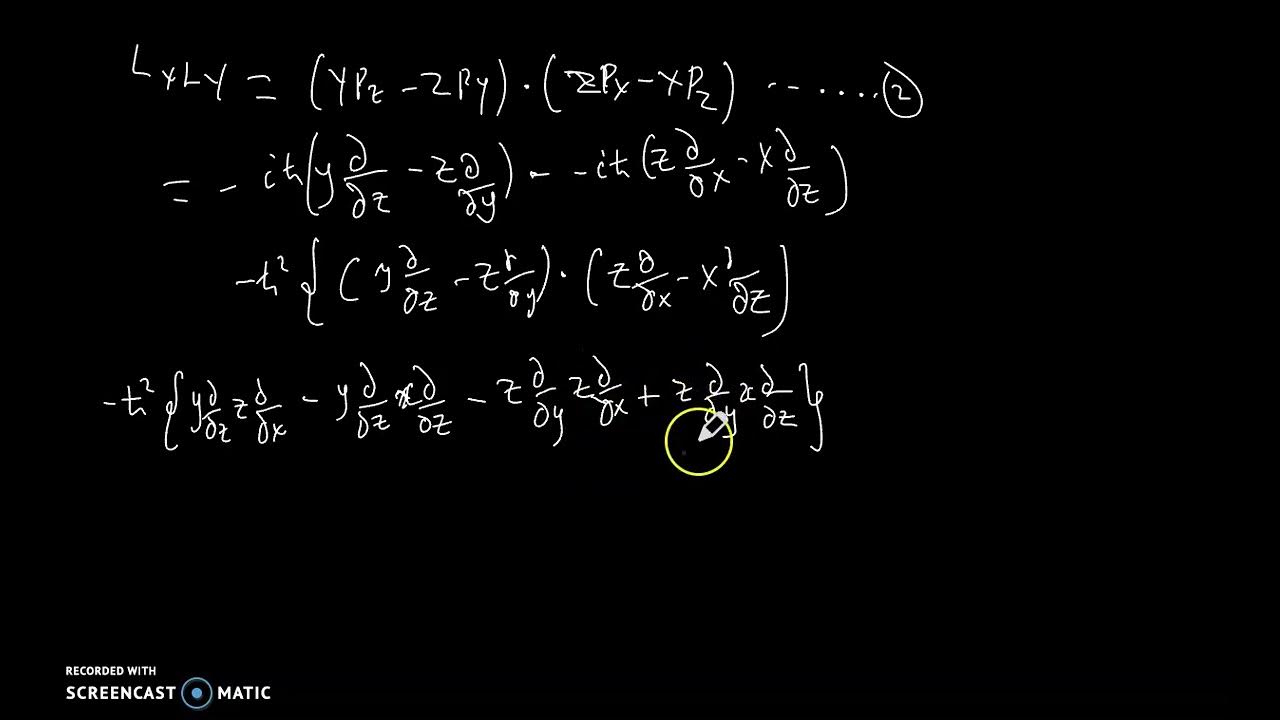 LxLy = (yPz - zPy) · (zPx - xPz) -- ..... ②
= - iħ(y ∂/∂z - z ∂/∂y) - - iħ (z ∂/∂x - x ∂/∂z)
-ħ² { ( y ∂/∂z - z ∂/∂y) · (z ∂/∂x - x ∂/∂z )
-ħ² { y ∂/∂z z ∂/∂x - y ∂/∂z x ∂/∂z - z ∂/∂y z ∂/∂x + z ∂/∂y x ∂/∂z }
RECORDED WITH
SCREENCAST MATIC